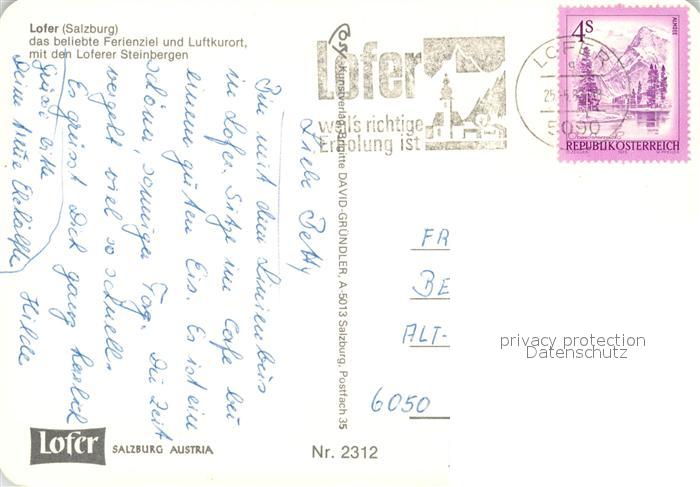 Lofer (Salzburg)
das beliebte Ferienziel und Luftkurort,
mit den Loferer Steinbergen
Liebe Betty
Bin mit dem Linienbus
in Lofer. Sitze im Cafe bei
einem guten Eis. Es ist ein
schöner sonniger Tag. Die Zeit
vergeht viel so schnell.
Es grüsst Dich ganz herzlich
Deine
Hilde
Grüsse
Lofer
SALZBURG AUSTRIA
Nr. 2312
Kunstverlag Brigitte DAVID-GRÜNDLER, A-5013 Salzburg, Postfach 35
Lofer
weil's richtige
Erholung ist
LOFER
5090
4S
ALMSEE
REPUBLIK ÖSTERREICH
FR
BE
ALT-
6050
privacy protection
Datenschutz